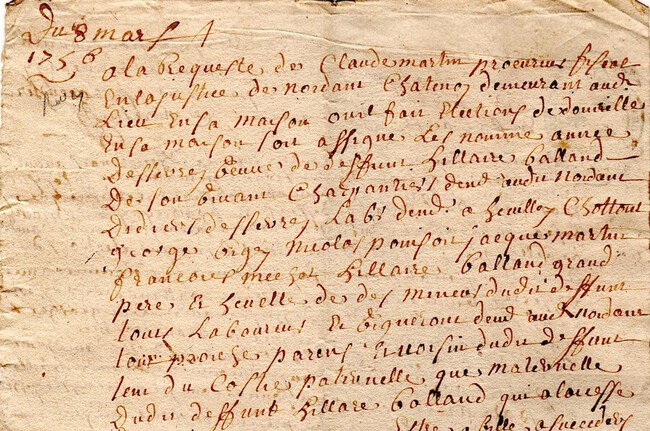 Du 8 mars
1756 a la Requeste de Claude martin procureur fiscal
En la justice de Nordant Chatenoy demeurant aud.
Lieu En sa maison ou il fait Elections de domicille
En sa maison soit assigne Les nomme annee
desserrez veuve de deffunt hillaire balland
de son vivant Charpantier dem.t audit Nordant
didier desserrez Lab.r dem.t a heuilley Chottout
george Nicolas poinsot jacque martin
francois hillaire balland grand
pere Et de des mineurs dudit deffunt
tous Laboureurs Et vigneront dem.t aud. Nordant
tous proche parens Et voisin dudit deffunt
tent du Costé paternelle que maternelle
dudit deffunt hillare balland qui a laisse